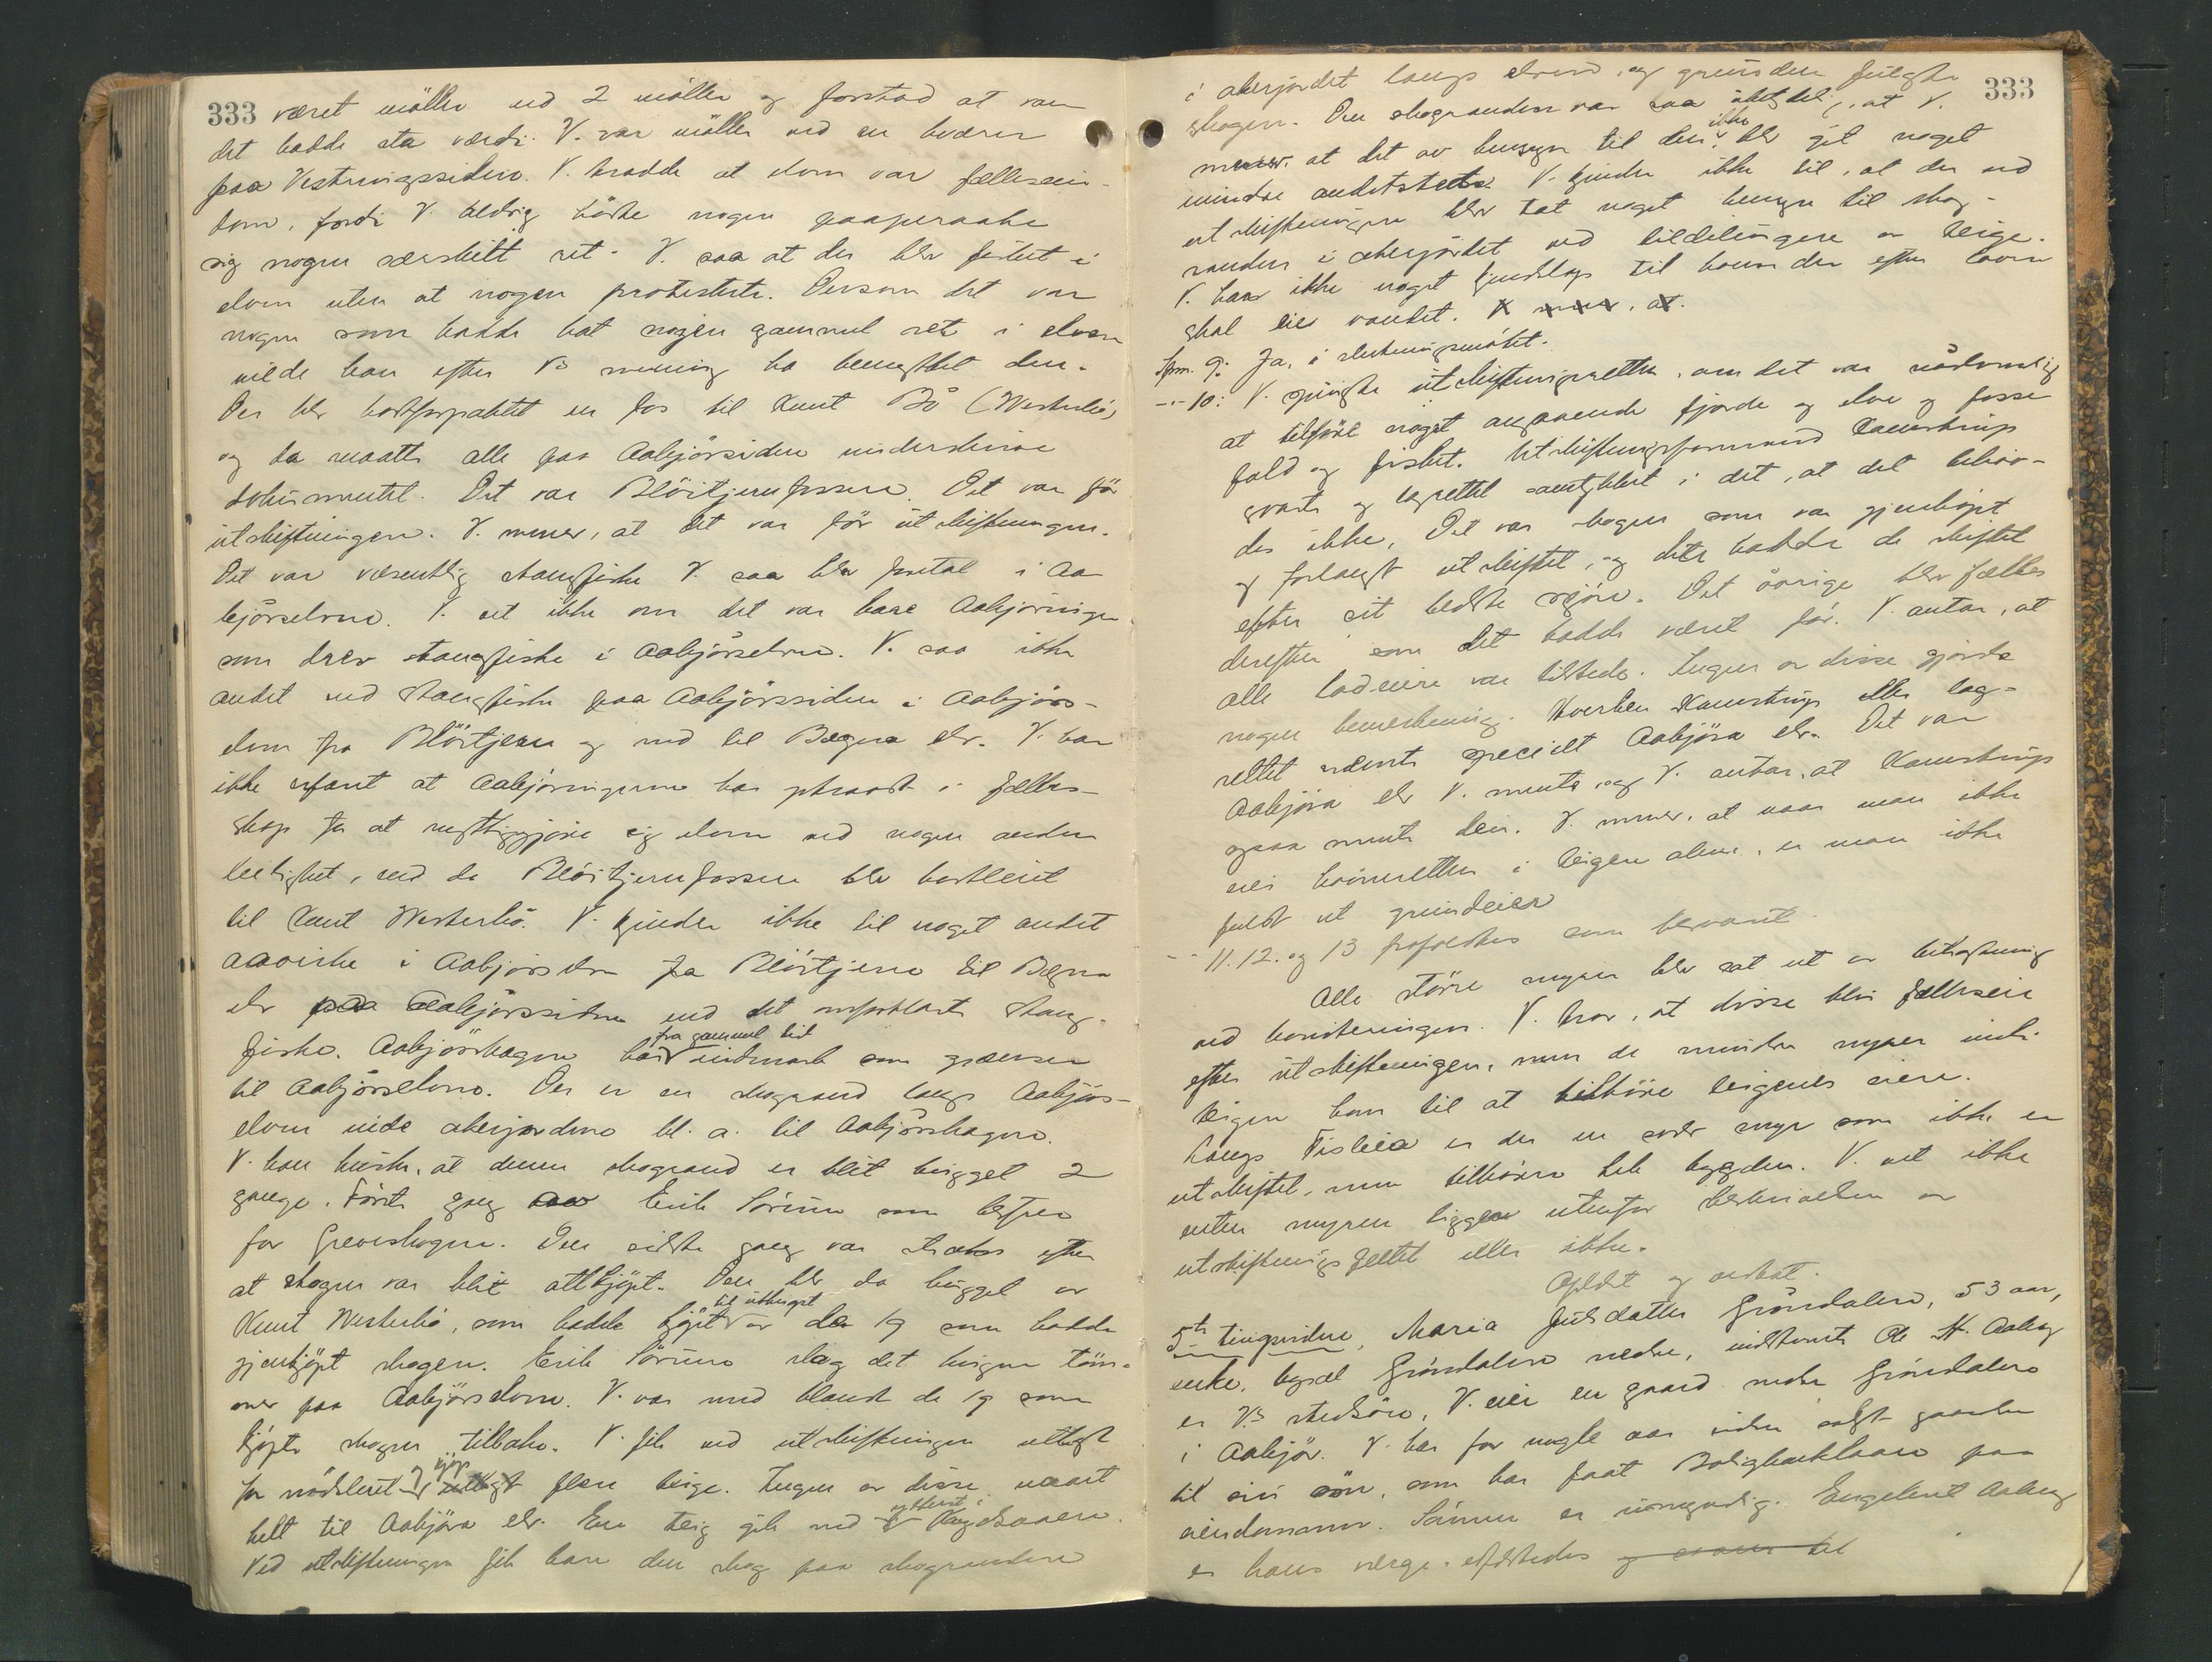 333 været møller ved 2 møller og forstod at van
det hadde sta værdi. V. var møller ved en kværn
paa Vestringssiden. V. trodde at elven var fælleseien-
dom, fordi V. aldrig hørte nogen paaperaabe
sig nogen særskilt ret. V. saa at der blev fisket i
elven uten at nogen protesterte. Dersom det var
nogen som hadde hat nogen gammel ret i elven
vilde han efter V's mening ha benyttet den.
Der blev bortforpaktet en fos til Knut Bø (Westerbø)
og da maatte alle paa Aabjørsiden underskrive
dokumentet. Det var Bløitjernfossen. Det var før
utskiftningen. V. mener, at det var før utskiftningen.
Det var væsentlig stangfiske V. saa blev foretat i Aa-
bjørselven. V. vet ikke om det var bare Aabjøringer
som drev stangfiske i Aabjørselven. V. saa ikke
andet end stangfiske paa Aabjørssiden i Aabjørs-
elven fra Bløitjern og ned til Bægna elv. V. har
ikke erfaret at Aabjøringerne har optraadt i fælles-
skap for at nyttiggjøre sig elven ved nogen anden
leilighet, end da Bløitjernfossen blev bortleiet
til Knut Westerbø. V. kjender ikke til noget andet
aavirke i Aabjørselven fra Bløitjern til Bægna
elv paa Aabjørssiden end det omforklarte stang-
fiske. Aabjørskogen har fra gammel tid utmark som grænser
til Aabjørselven. Der er en skogrand langs Aabjørs-
elven inde akerjordene bl. a. til Aabjørshagen.
V. kan huske, at denne skogrand er blit hugget 2
gange. Første gang av Erik Sørum som bestyrer
for Greveskogen. Den sidste gang var straks efter
at skogen var blit attkjøpt. Den blev da hugget av
Knut Westerbø, som hadde kjøpt til uthugst av de 19 som hadde
gjenkjøpt skogen. Erik Sørum slog det hugne tøm-
mer paa Aabjørselven. V. var med blandt de 19 som
kjøpte skogen tilbake. V. fik ved utskiftningen utlagt
for nødsleiet og kjøp flere teige. Ingen av disse naadt
helt til Aabjøra elv. En teig gik ned
Ved utskiftningen fik han den skog paa skogranden
333
i akerjordet langs elven, og grunden fulgte
skogen. Den skogranden var saa ubetydelig, at V.
mener at det av hensyn til den ikke blev git noget
mindre andetsteds. V. kjender ikke til, at der ved
utskiftningen blev tat noget hensyn til skog-
randen i akerjordet ved tildelingen av teige.
V. har ikke noget kjendskap til hvem der efter loven
skal eie vandet. V. mener, at.
Spm. 9: Ja, i slutningsmøtet.
-"- 10: V. spurgte utskiftningsretten, om det var nødvendig
at tilføie noget angaaende fjorde og elve og fosse-
fald og fisket. Utskiftningsformand Kamstrup
svarte og lagrettet samtykket i det, at det behøv-
des ikke. Det var skogen som var gjenkjøpt
og forlangt utskiftet, og dette hadde de skiftet
efter sit bedste skjøn. Det øvrige blev fælles
derefter som det hadde været før. V. antar, at
alle lodeiere var tilstede. Ingen av disse gjorde
nogen bemerkning. Hverken Kamstrup eller lag-
rettet nævnte specielt Aabjøra elv. Det var
Aabjøra elv V. mente, og V. antar, at Kamstrup
ogsaa mente den. V. mener, at naar man ikke
eier havneretten i teigen alene, er man ikke
fuldt ut grundeier.
-"- 11. 12. og 13 frafaldtes som besvart.
Alle større myrer blev sat ut av betragtning
ved boniteringen. V. tror, at disse blev fælleseie
efter utskiftningen, men de mindre myrer inde i
teigen kom til at tilhøre teigenes eiere.
Langs Fisleia er der en svær myr som ikke er
utskiftet, men tilhører hele bygden. V. vet ikke
enten myren ligger utenfor beskrivelsen av
utskiftningsfeltet eller ikke.
Oplæst og vedtat.
5te tingsvidne, Maria Juls datter Grøndalen, 53 aar,
enke, bopæl Grøndalen nedre, vidkomts Ole K. Aaberg
er V's stedsøn. V. eier en gaard nedre Grøndalen
i Aabjør. V. har for nogle aar siden solgt gaarden
til sin søn, som har faat Boligbanklaan paa
eiendommen. Sønnen er umyndig. Engebret Aaberg
er hans verge. edfæstedes og svarer til